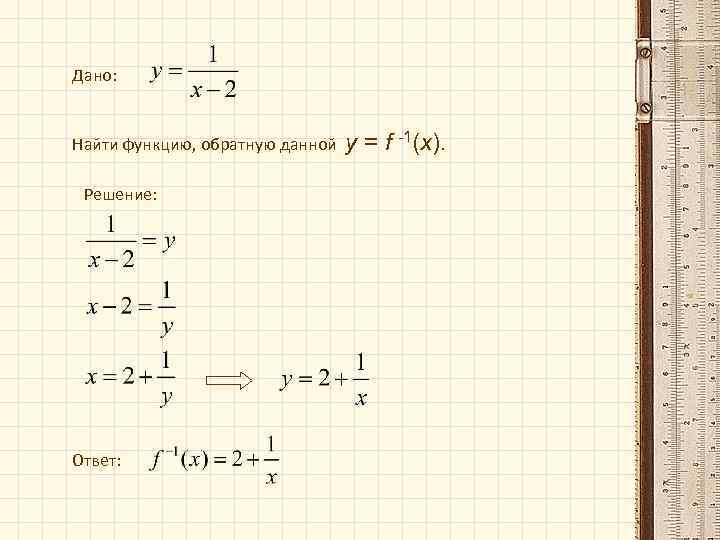 Дано: y = 1/(x − 2)
Найти функцию, обратную данной y = f ⁻¹(x).
Решение:
1/(x − 2) = y
x − 2 = 1/y
x = 2 + 1/y ⇒ y = 2 + 1/x
Ответ: f ⁻¹(x) = 2 + 1/x